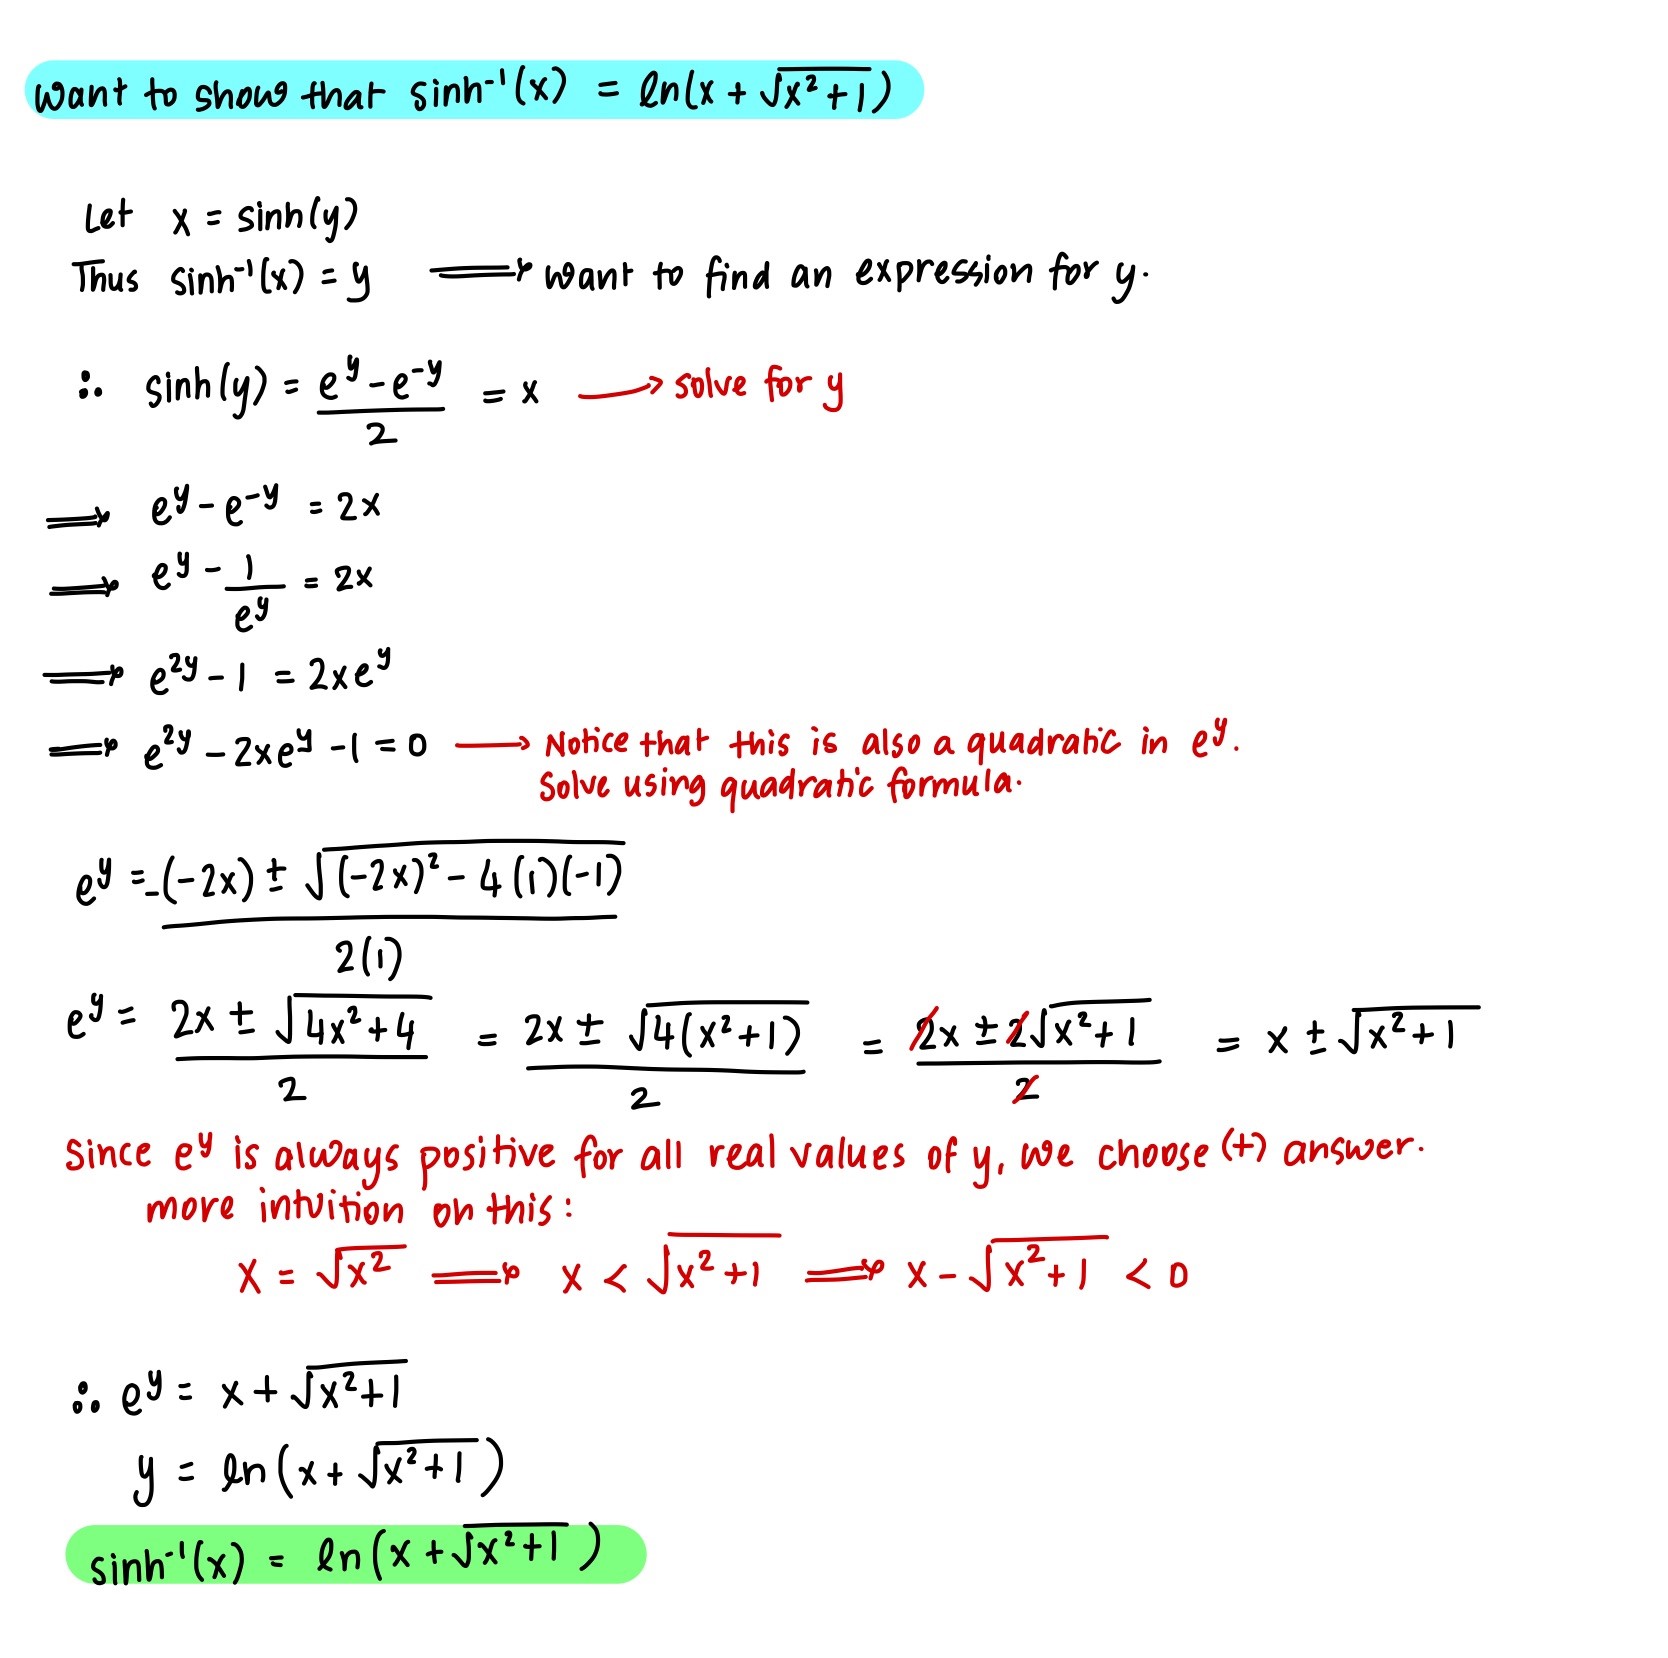 want to show that sinh⁻¹(x) = ln(x + √(x²+1))
Let x = sinh(y)
Thus sinh⁻¹(x) = y ⟹ want to find an expression for y.
∴ sinh(y) = (e^y - e^-y)/2 = x → solve for y
⟹ e^y - e^-y = 2x
⟹ e^y - 1/e^y = 2x
⟹ e^2y - 1 = 2xe^y
⟹ e^2y - 2xe^y - 1 = 0 → Notice that this is also a quadratic in e^y.
Solve using quadratic formula.
e^y = (-(-2x) ± √((-2x)² - 4(1)(-1)))/2(1)
e^y = (2x ± √(4x²+4))/2 = (2x ± √(4(x²+1)))/2 = (2x ± 2√(x²+1))/2 = x ± √(x²+1)
Since e^y is always positive for all real values of y, we choose (+) answer.
more intuition on this:
x = √(x²) ⟹ x < √(x²+1) ⟹ x - √(x²+1) < 0
∴ e^y = x + √(x²+1)
y = ln(x + √(x²+1))
sinh⁻¹(x) = ln(x + √(x²+1))